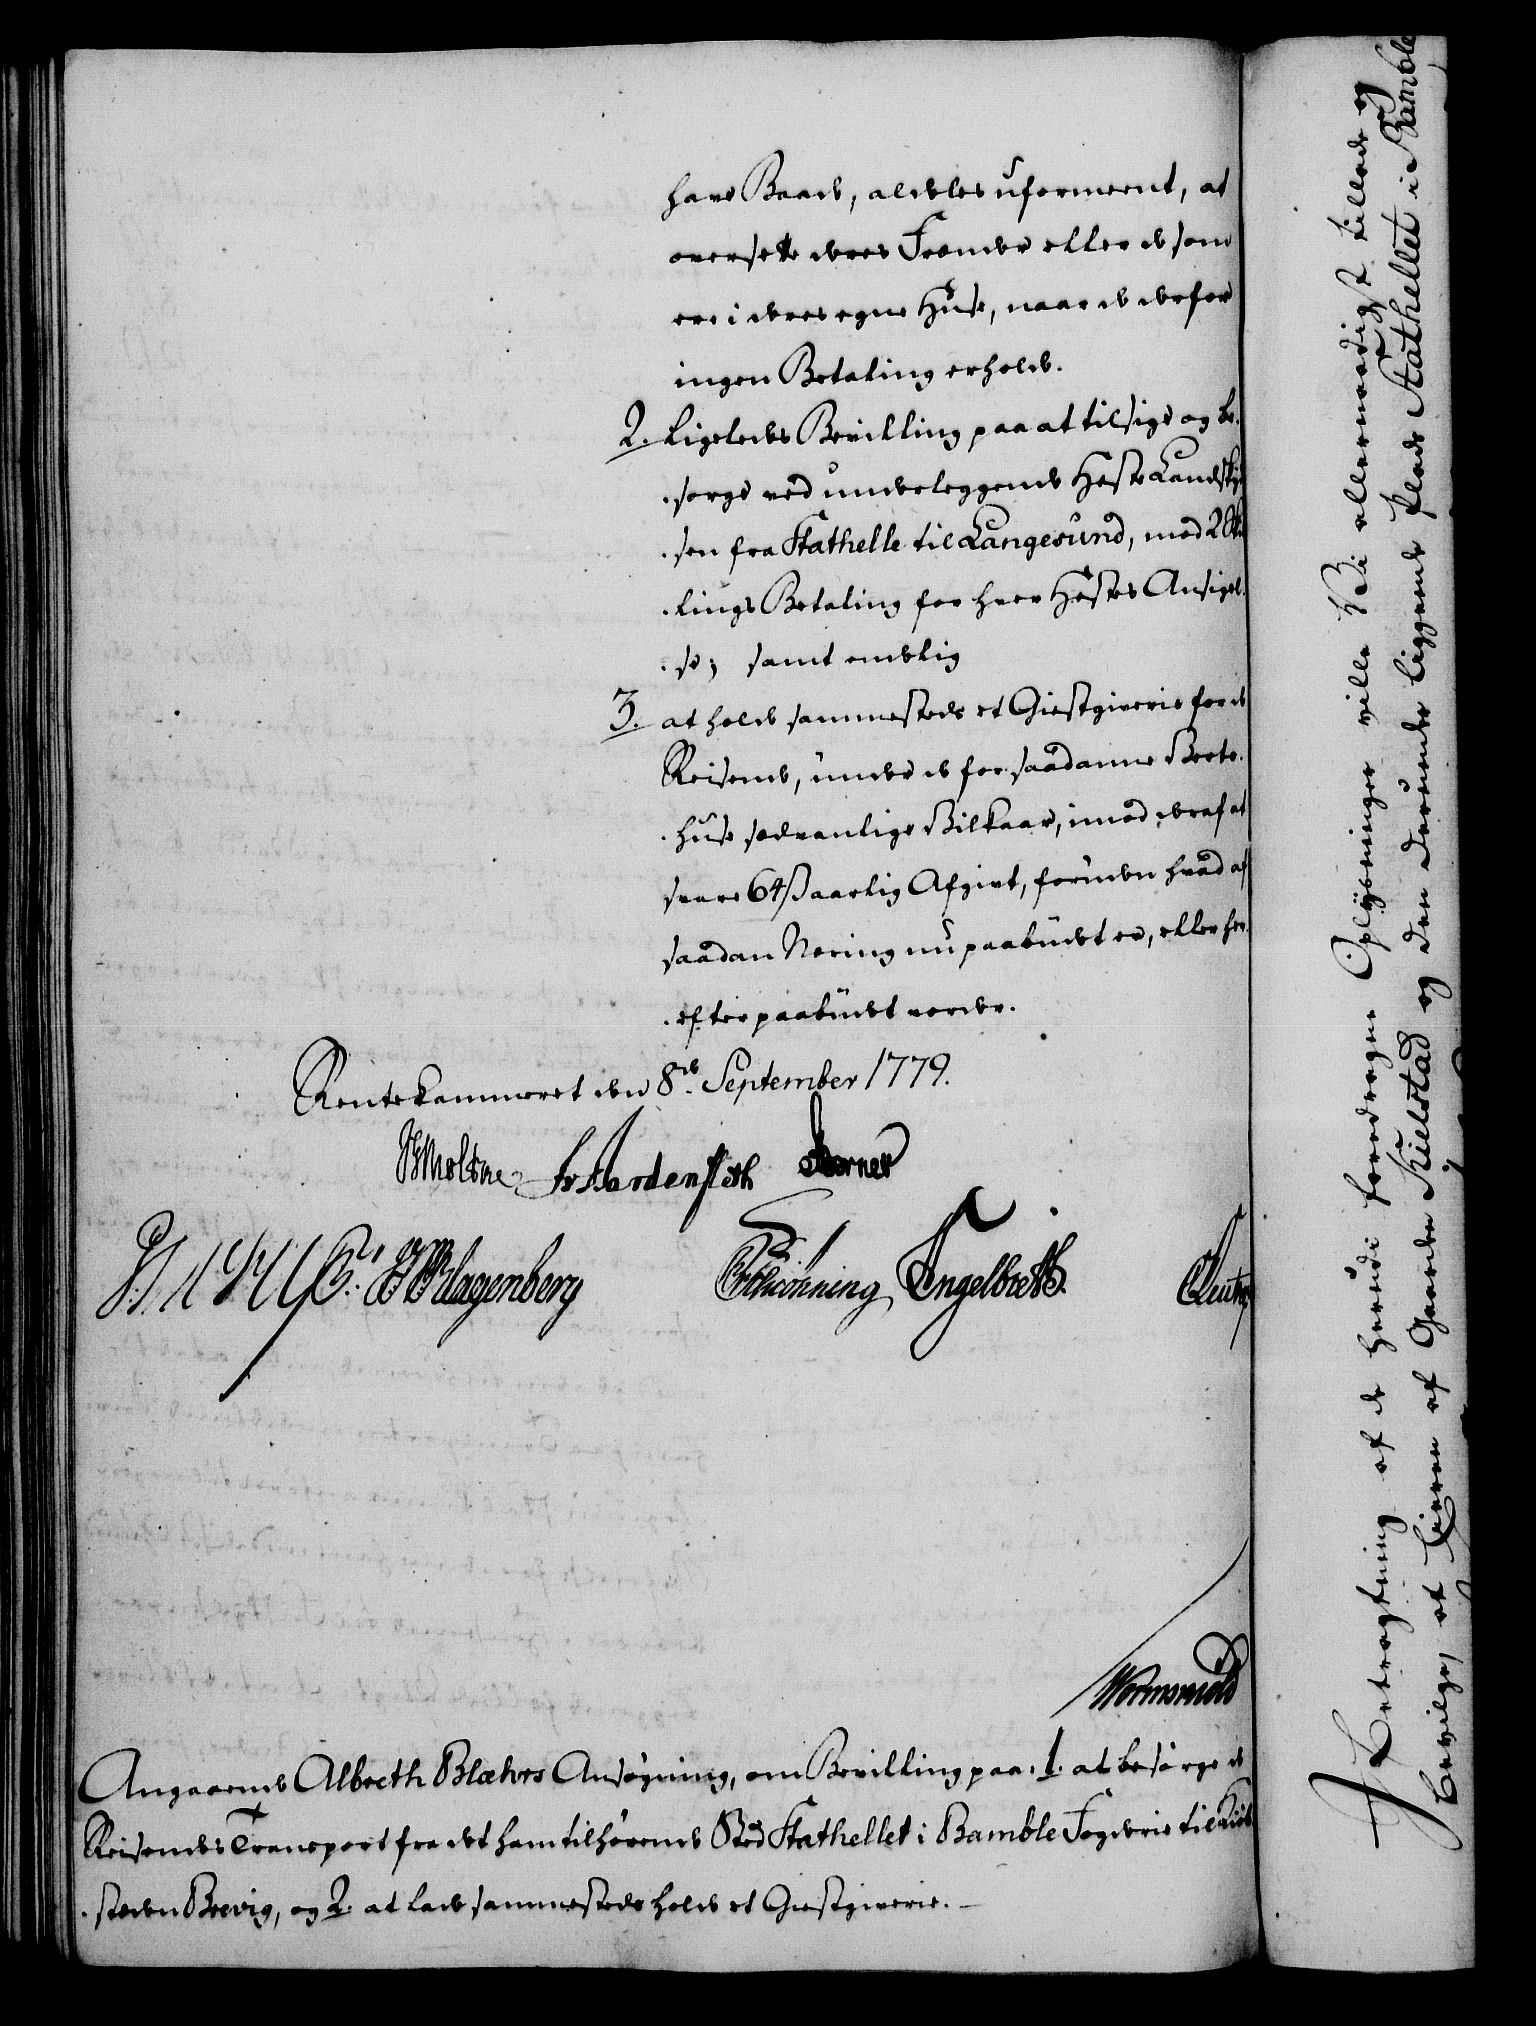 have Baade, aldeles uformeent, at
oversette deres Frænder eller de som
ere i deres egne Huse, naar de derfor
ingen Betaling erholde.
2. Ligeledes Bevilling paa at tilsige og be-
sørge ved underleggende Heste Landsky-
sen fra Stathelle til Langesund, med 2 Skil-
lings Betaling for hver Hestes Ansigel-
se; samt endelig
3. at holde sammesteds et Giestgiverie for de
Reisende, under de for saadanne Værts-
huse sædvanlige Vilkaar, imod deraf at
svare 64 ß aarlig Afgivt, foruden hvad af
saadan Næring nu paabudet er, eller her-
efter paabudet vorder.
Rentekammeret den 8de September 1779.
JGMoltke Fr: Hardenfleth
Klagenberg Schiønning Engelbreth.
Wormskiold
Angaaende Albreth Blæhrs Ansøgning, om Bevilling paa: 1. at besørge de
Reisendes Transport fra det ham tilhørende Sted Stathellet i Bamble Fogderie til Kiøb-
steden Brevig, og 2. at lade sammesteds holde et Giestgiverie.
I Betragtning af de herudi foredragne Oplysninger ville Vi allernaadigst tillade og
bevilge, at Eieren af Gaarden Kielstad og den derunder liggende Plads Stathellet i Bamble